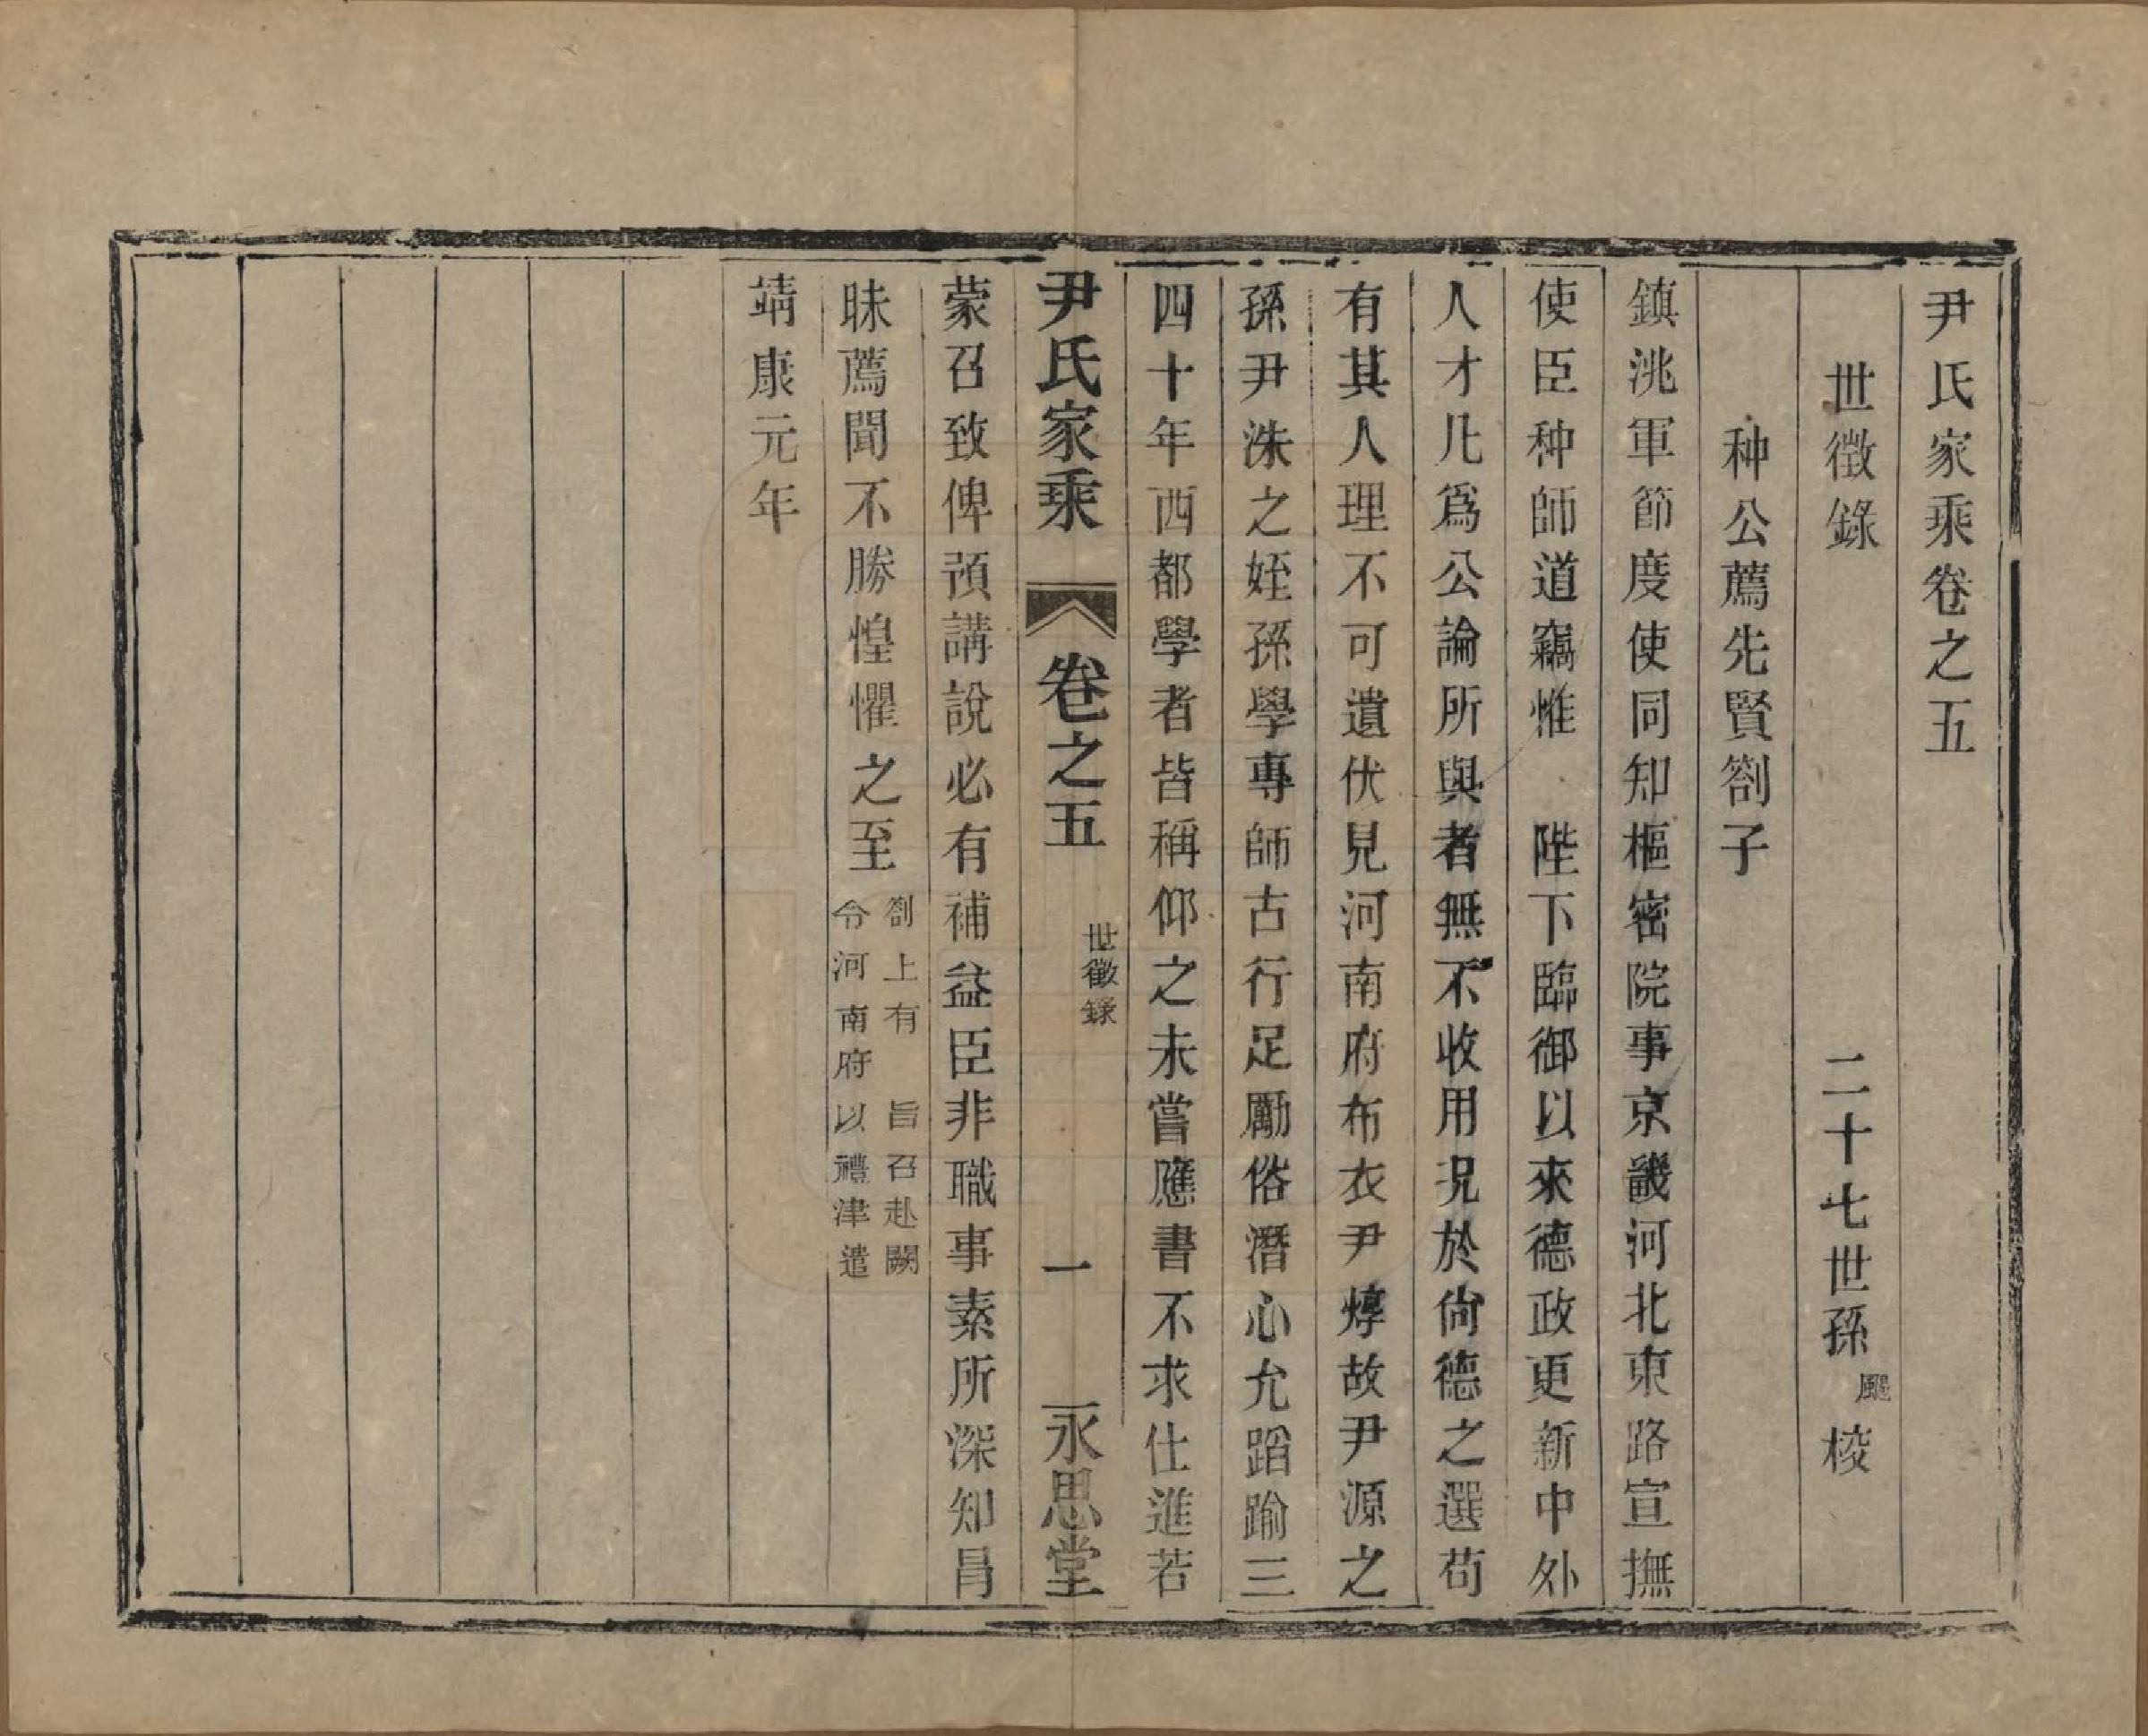 尹氏家乘卷之五
世徵錄　二十七世孫颺梭
种公薦先賢劄子
鎮洮軍節度使同知樞密院事京畿河北東路宣撫
使臣种師道竊惟　陛下臨御以來德政更新中外
人才凡爲公論所與者無不收用况於尙德之選苟
有其人理不可遺伏見河南府布衣尹焞故尹源之
孫尹洙之姪孫學專師古行足勵俗潛心允蹈踰三
四十年西都學者皆稱仰之未嘗應書不求仕進若
尹氏家乘　卷之五　世徵錄　一　永思堂
蒙召致俾預講說必有補益臣非職事素所深知昌
昧薦聞不勝惶懼之至
劄上有　旨召赴闕
令河南府以禮津遣
靖康元年